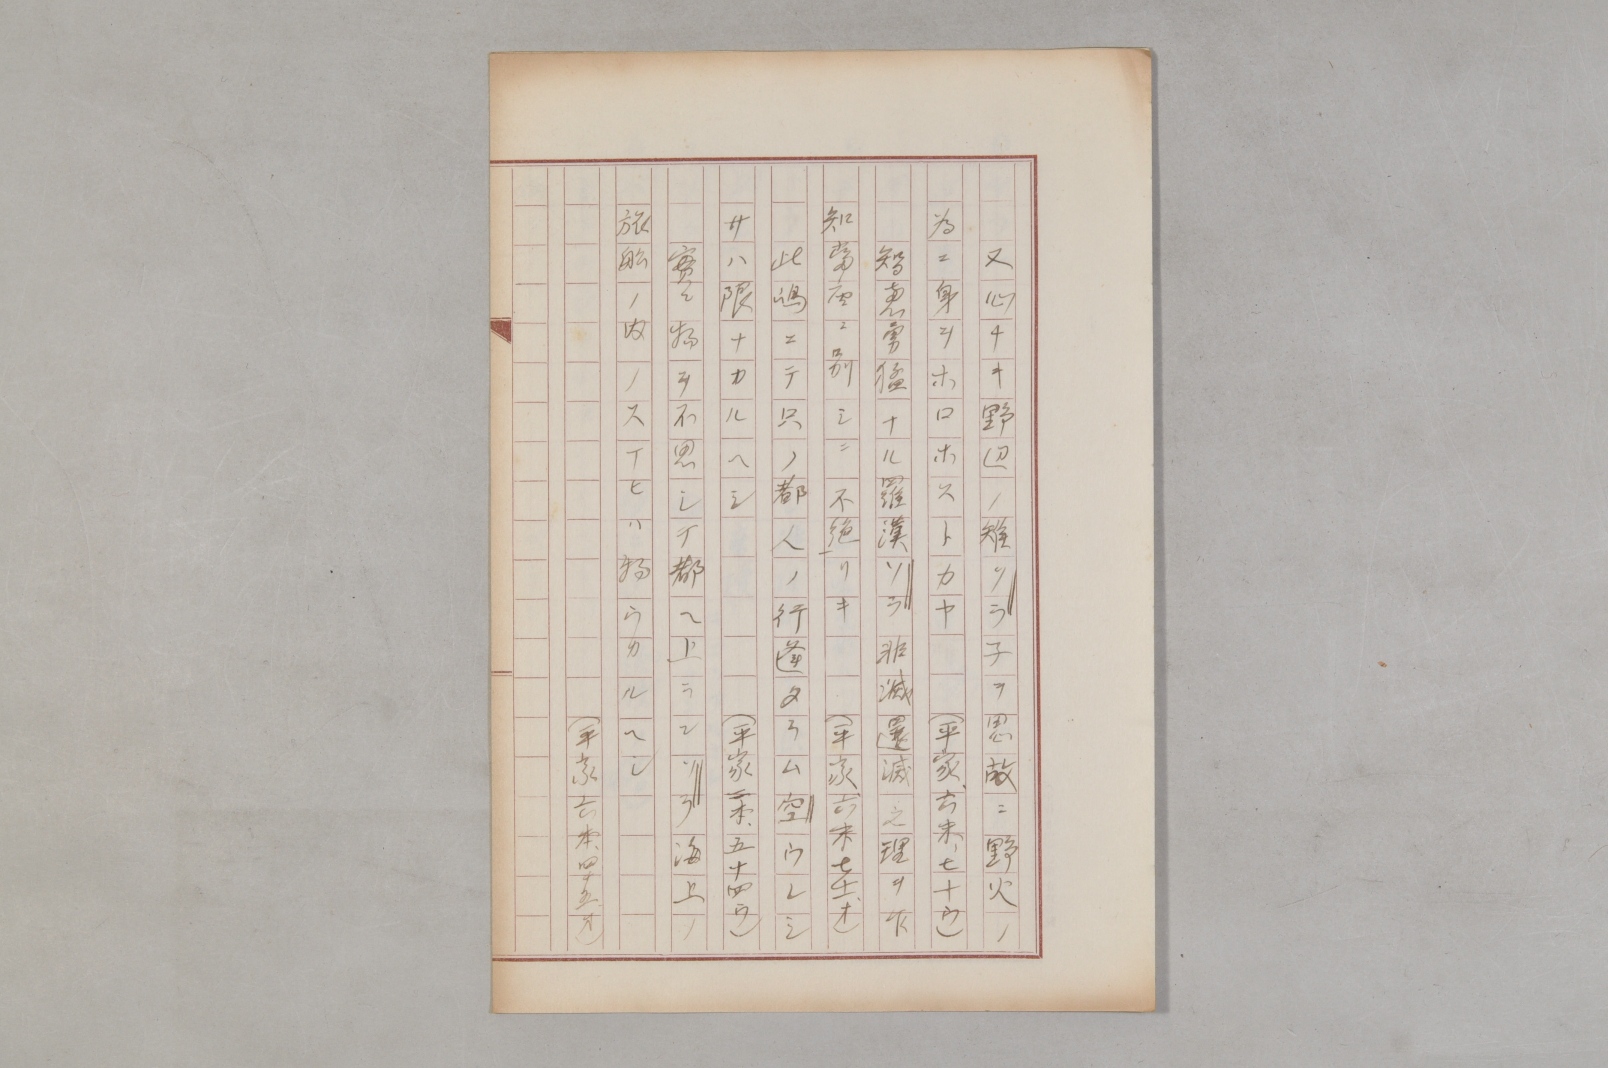 又心ナキ野辺ノ雉ソラ子ヲ思敵ニ野火ノ
為ニ身ヲホロホストカヤ（平家、六末、七十ウ）
智恵勇猛ナル羅漢ソラ非滅還滅之理ヲ乍
知当座ニ別シニ不絶リキ（平家六末七十一オ）
此嶋ニテ只ノ都人ノ行逢タラム空ウレシ
サハ限ナカルヘシ（平家一末、五十四ウ）
実ニ物ヲ不思シテ都ヘ上ランソラ海上ノ
旅船ノ内ノスマヒハ物ウカルヘシ
（平家六末、四十五オ）